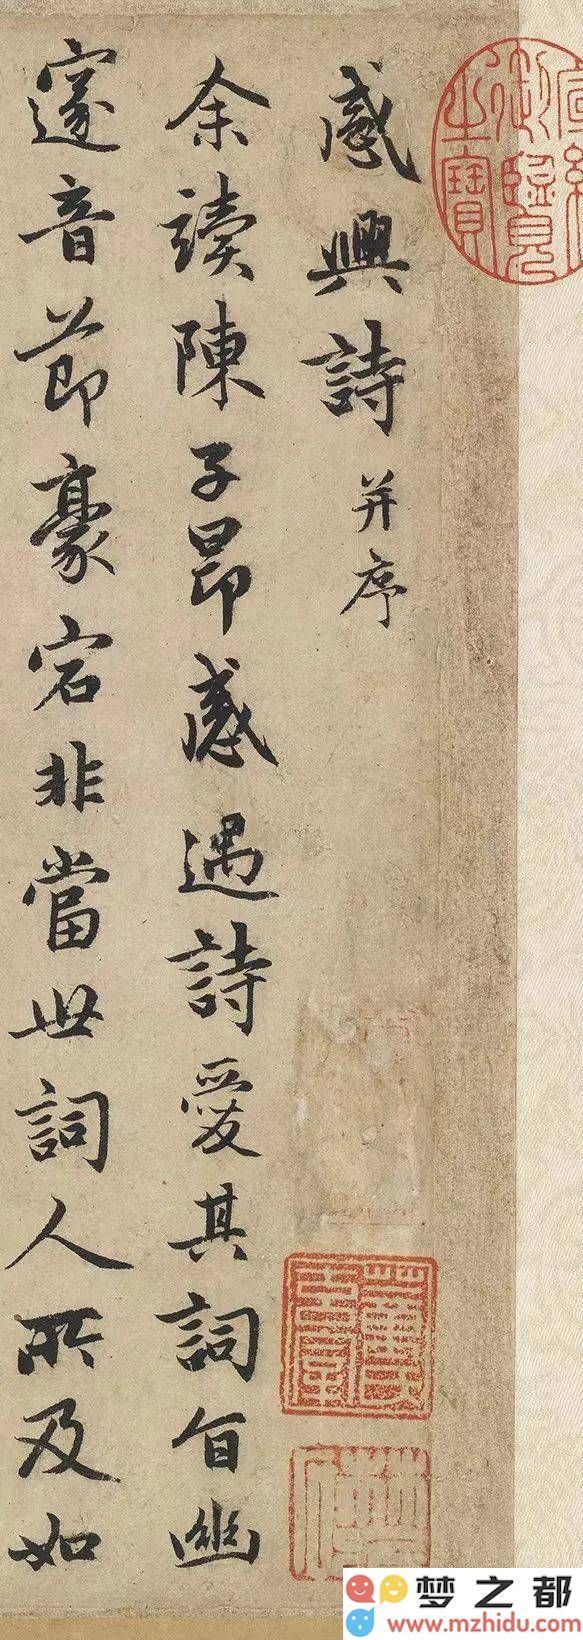 感興詩并序
余讀陳子昂感遇詩愛其詞旨幽
邃音節豪宕非當世詞人所及如
宣統御覽之寶
梦之都
www.mzhidu.com